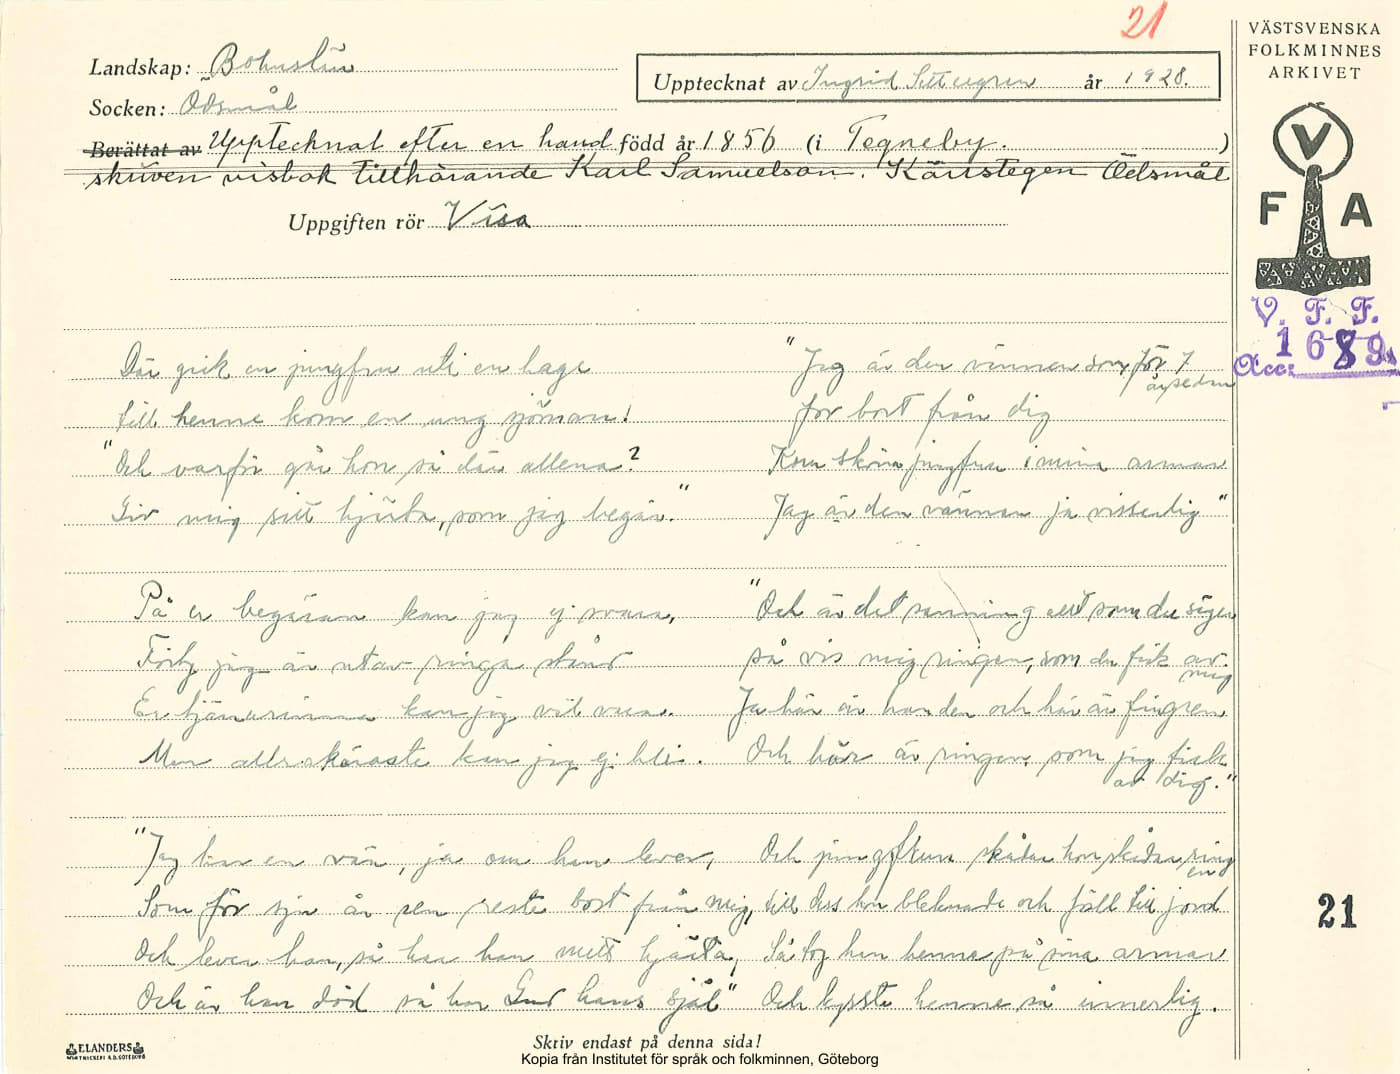 21
VÄSTSVENSKA
FOLKMINNES
ARKIVET
Landskap: Bohuslän
Upptecknat av Ingrid Settergren år 1928.
Socken: Ödsmål
Berättat av Upptecknat efter en hand född år 1856 (i Tegneby. )
skriven visbok tillhörande Karl Samuelson. Kärrstegen Ödsmål
Uppgiften rör Visa
V
F A
V. F. F.
Acc: 1689
Där gick en jungfru uti en hage
till henne kom en ung sjöman!
"Och varför går hon så där allena?
Giv mig sitt hjärta, som jag begär."
På er begäran kan jag ej svara,
Förty jag är utav ringa stånd
Er tjänarinna kan jag väl vara.
Men allrakäraste kan jag ej bli.
"Jag har en vän, ja om han lever,
Som för sju år sen reste bort från mig,
Och lever han, så har han mitt hjärta,
Och är han död så har Gud hans själ"
"Jag är den vännen som för 7
år sedan
for bort från dig
Kom sköna jungfru i mina armar
Jag är den vännen ja visserlig"
"Och är det sanning allt som du säger
så vis mig ringen, som du fick av
mig
Ja här är handen och här är fingren
Och här är ringen som jag fick
av dig."
Och jungfrun skådar hon skådar ring
en
till dess hon bleknade och föll till jord
Så tog han henne på sina armar
Och kysste henne så innerlig.
21
ELANDERS
Skriv endast på denna sida!
Kopia från Institutet för språk och folkminnen, Göteborg